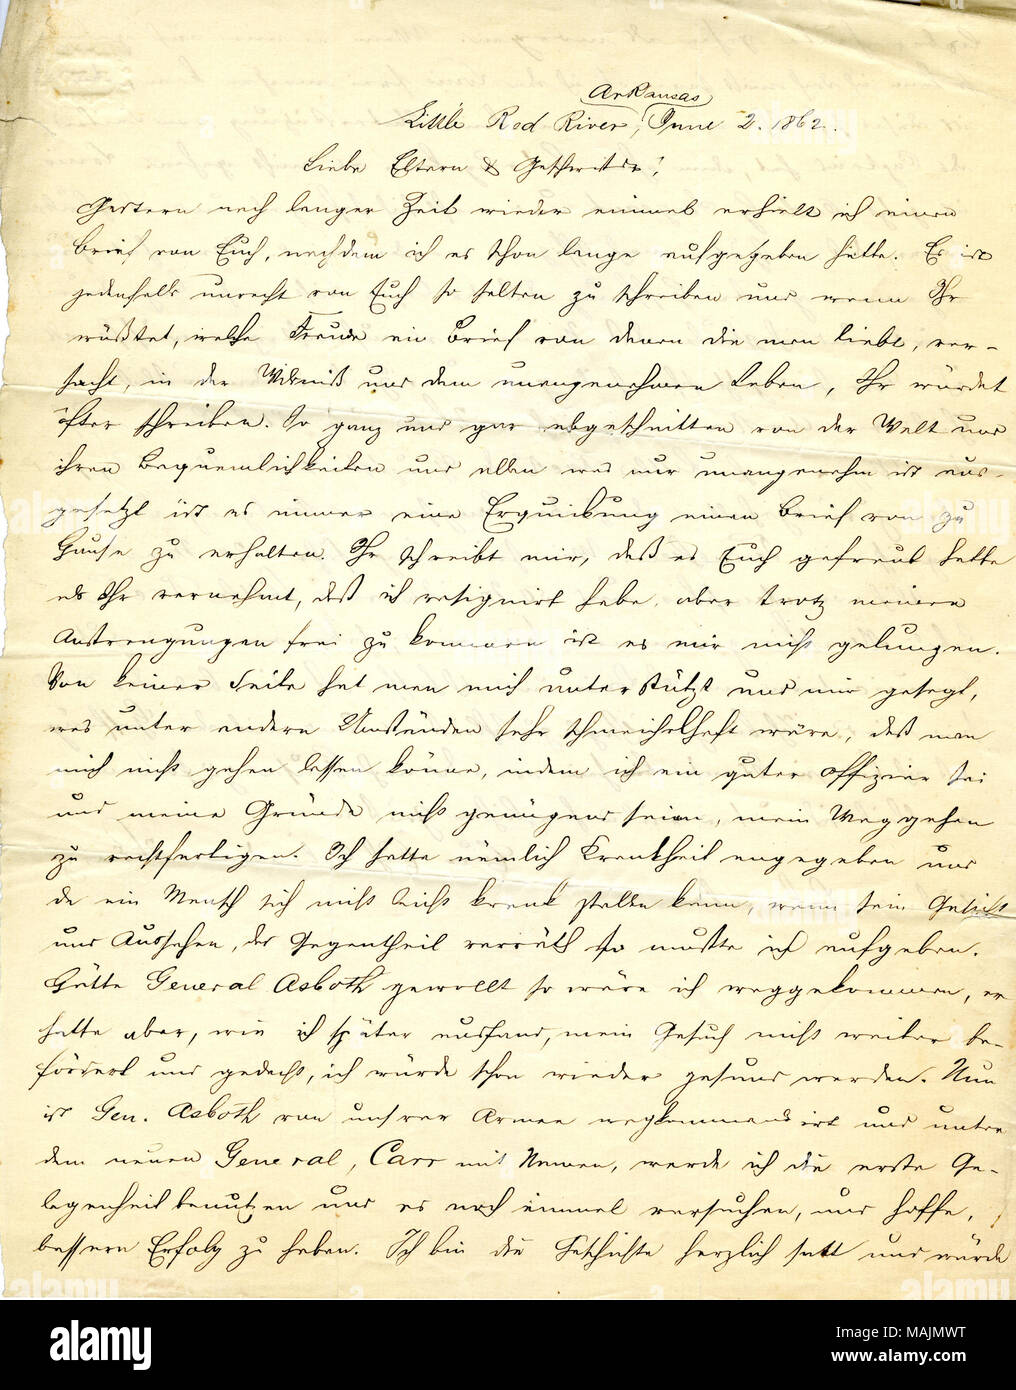 Arkansas
Little Red River, June 2. 1862.
Liebe Eltern & Geschwister!
Gestern nach langer Zeit wieder einmal erhielt ich einen
Brief von Euch, nachdem ich es schon lange aufgegeben hatte. Es ist
jedenfalls unrecht von Euch so selten zu schreiben und wenn Ihr
wüßtet, welche Freude ein Brief von denen die man liebt, ver-
sacht, in der Wildniß und dem unangenehmen Leben, Ihr würdet
öfter schreiben. So ganz und gar abgeschnitten von der Welt und
ihren Bequemlichkeiten und allem was nur unangenehm ist aus-
gesetzt ist es immer eine Erquickung einen Brief von zu
Hause zu erhalten. Ihr schreibt mir, daß es Euch gefreut hatte
als Ihr vernehmt, daß ich resignirt habe, aber trotz meinen
Anstrengungen frei zu kommen ist es mir nicht gelungen.
Von keiner Seite hat man mich unterstützt und mir gesagt,
was unter andern Umständen sehr schmeichelhaft wäre, daß man
mich nicht gehen lassen könne, indem ich ein guter Offizier sei
und meine Gründe nicht genügend seien, mein Weggehen
zu rechtfertigen. Ich hatte nämlich Krankheit angegeben und
da ein Mensch sich nicht leicht krank stellen kann, wenn sein Gesicht
und Aussehen, das Gegentheil verräth so mußte ich aufgeben.
Hätte General Asboth gewollt so wäre ich weggekommen, er
hatte aber, wie ich später ausfand, mein Gesuch nicht weiter be-
fördert und gedacht, ich würde schon wieder gesund werden. Nun
ist Gen. Asboth von unsrer Armee wegkommandirt und unter
dem neuen General, Carr mit Namen, werde ich die erste Ge-
legenheit benutzen und es noch einmal versuchen, und hoffe,
bessern Erfolg zu haben. Ich bin die Geschichte herzlich satt und würde
alamy
Image ID: MAJMWT
www.alamy.com